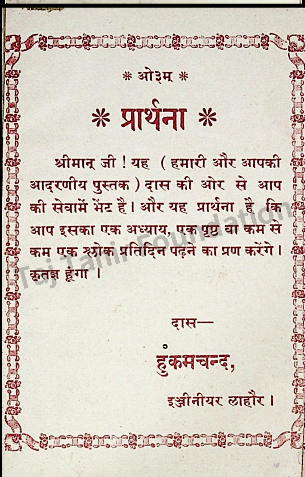 * ओ३म् *
* प्रार्थना *
श्रीमान् जी ! यह ( हमारी और आपकी
आदरणीय पुस्तक ) दास की ओर से आप
की सेवामें भेंट है। और यह प्रार्थना है कि
आप इसका एक अध्याय, एक पृष्ठ वा कम से
कम एक श्लोक प्रतिदिन पढ़ने का प्रण करेंगे।
कृतज्ञ हूंगा ।
दास—
हुंकमचन्द,
इञ्जीनीयर लाहौर ।
Taj Tanir Foundation